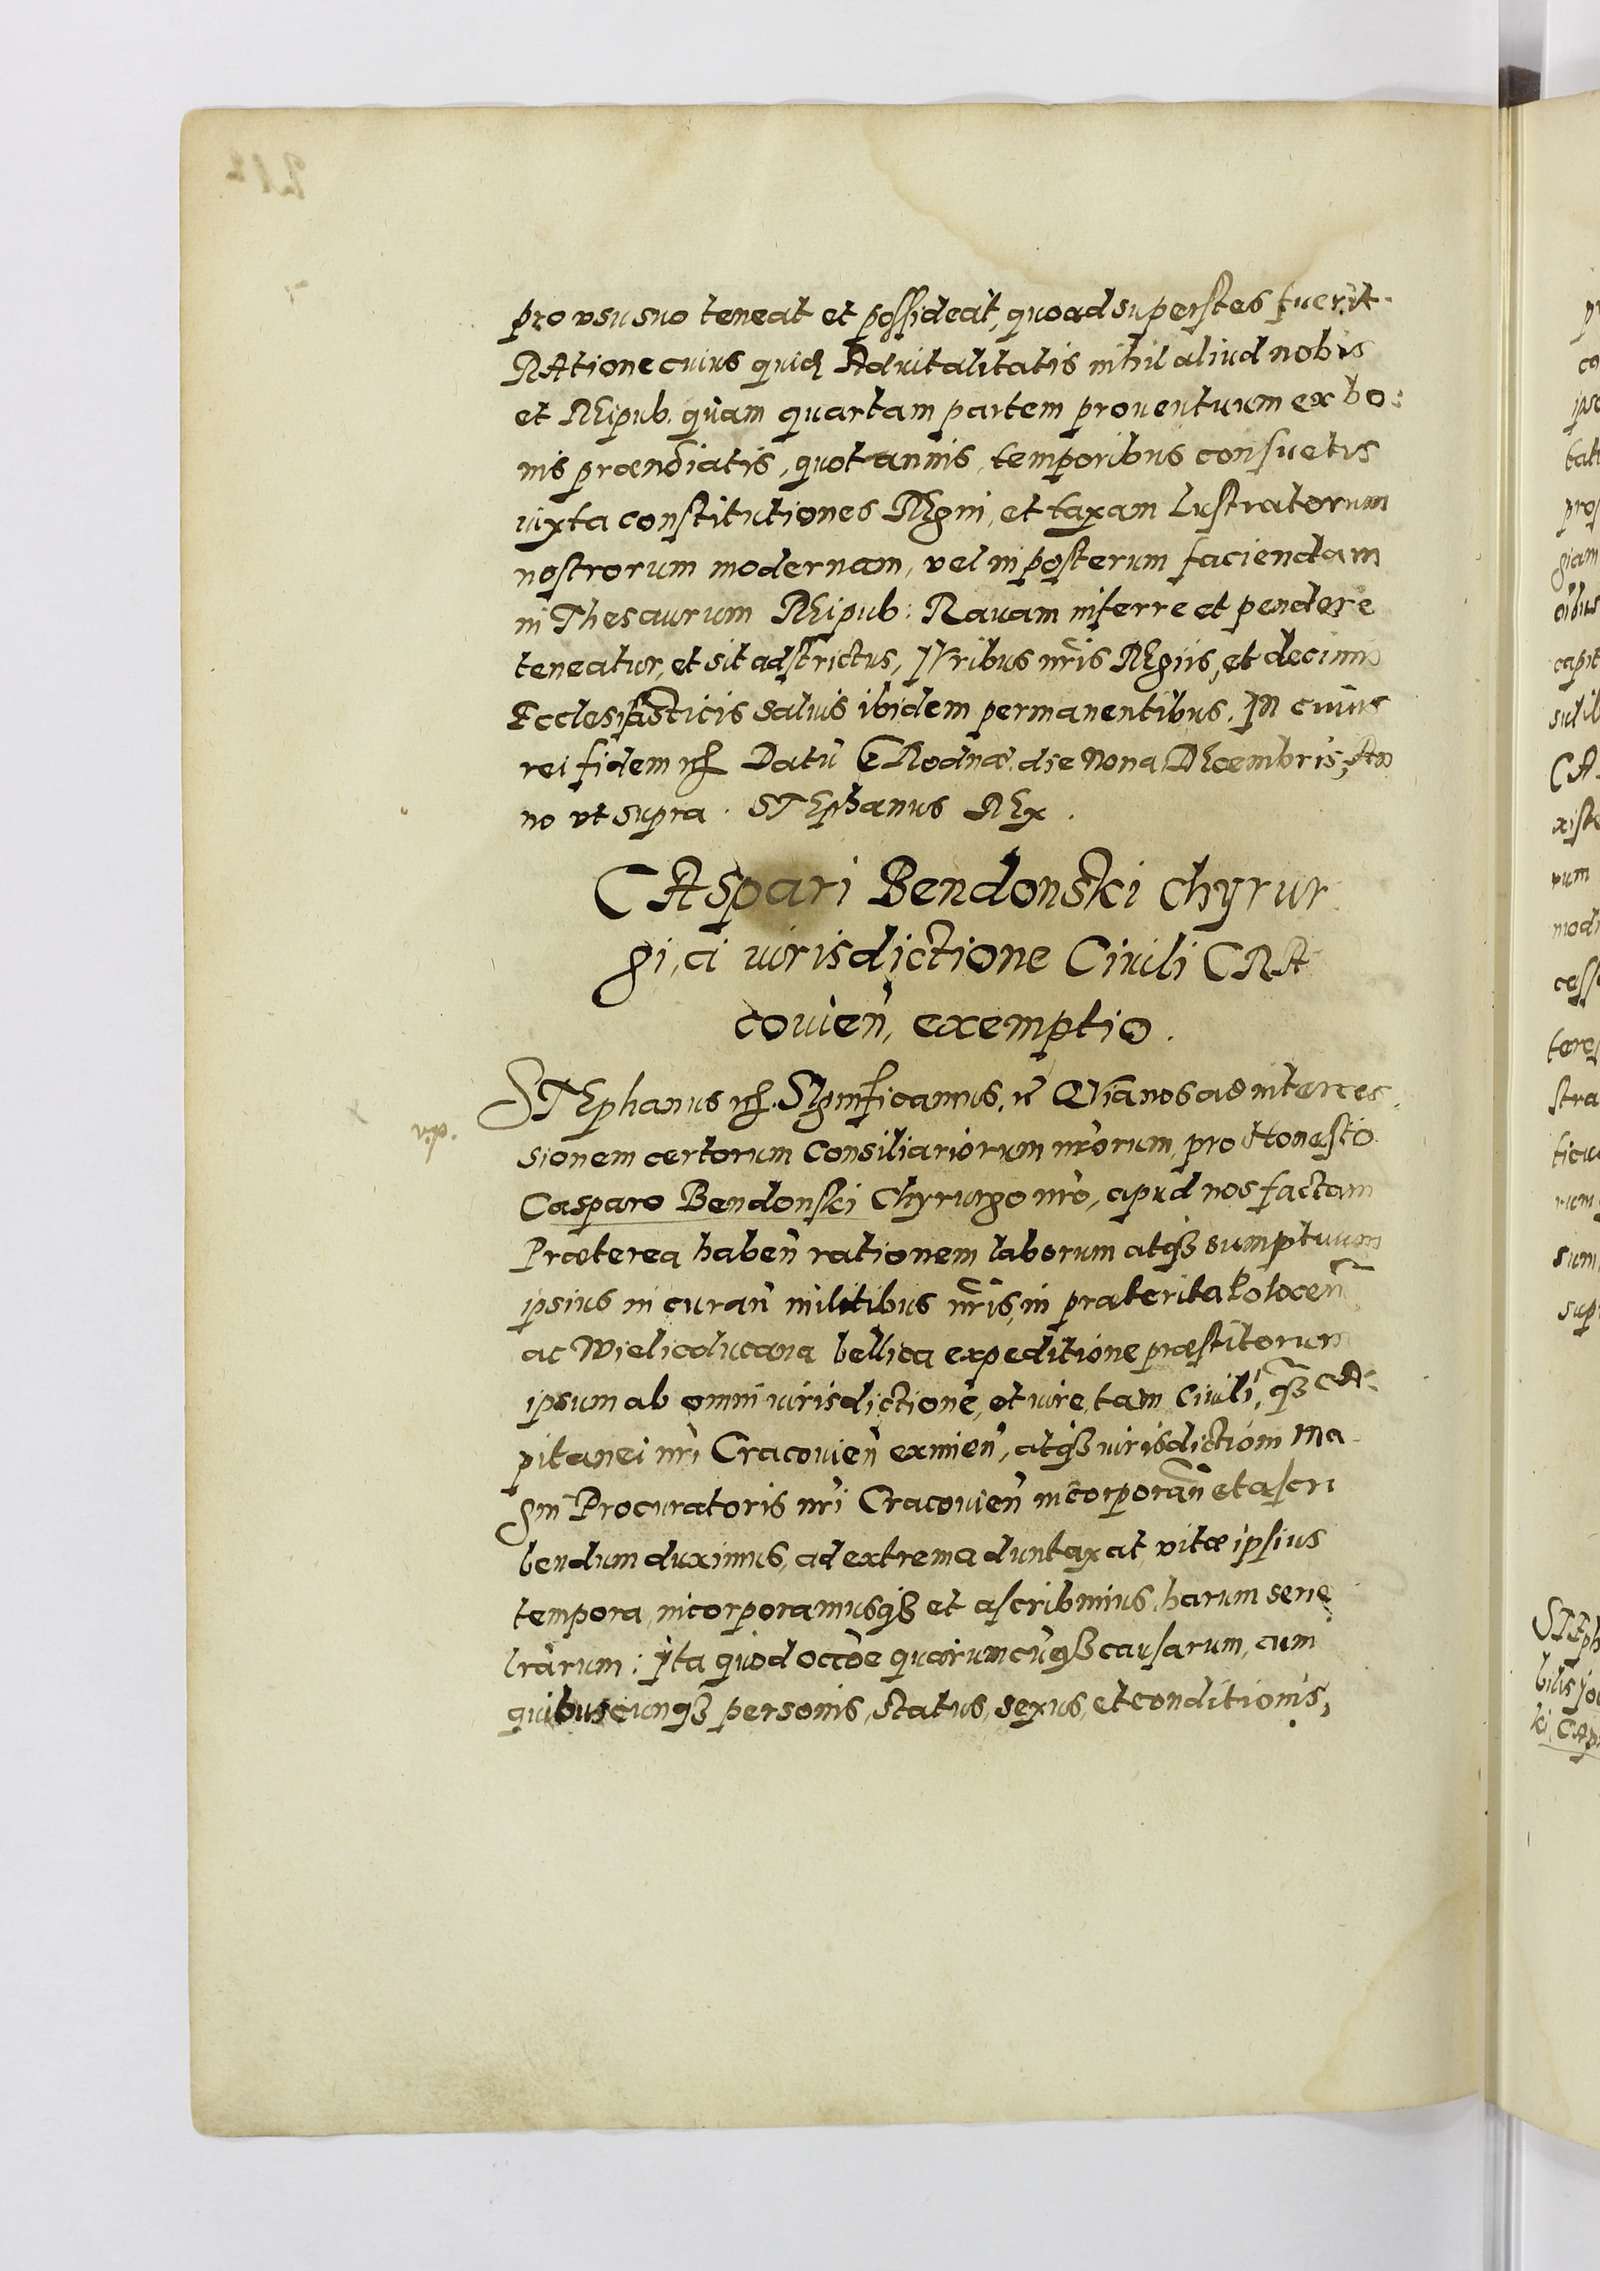 pro vsu suo teneat et possideat, quoad superstes fuerit.
RAtione cuius quid Aduitalitatis nihil aliud nobis
et REipub. quam quartam partem prouentuum ex bo:
nis praendiatis, quotannis, temporibus consuetis
iuxta constitutiones REgni, et taxam Lustratorum
nostrorum modernam, vel in posterum faciendam
in Thesaurum REipub: Rauam inferre et pendere
teneatur, et sit adstrictus, IVribus nris REgiis, et decimis
Ecclesiasticis saluis ibidem permanentibus. IN cuius
rei fidem Datu GRodnae. die Nona DEcembris, An
no vt supra. STEphanus REx.
CAspari Bendonski Chyrur
gi, a iurisdictione Ciuili CRA
couien, exemptio.
STEphanus Significamus, QVia nos ad interces
sionem certorum Consiliariorum nrorum, pro Honesto
Casparo Bendonski Chyrurgo nro, apud nos factam
Praeterea haben rationem laborum atq3 sumptuum
ipsius in curan militibus nris, in praeterita Polocen
ac Wielicolucana bellica expeditione praestitorum
ipsum ab omni iurisdictione, et iure, tam Ciuili, q3 CA:
pitanei nri Cracouien eximien, atq3 iurisdictioni Ma
gni Procuratoris nri Cracouien incorporan et ascri
bendum duximus, ad extrema duntaxat vitae ipsius
tempora, incorporamusq3 et ascribimus, harum serie
lrarum: yta quod occoe quarumcunq3 causarum, cum
quibuscunq3 personis, status, sexus, et conditionis,